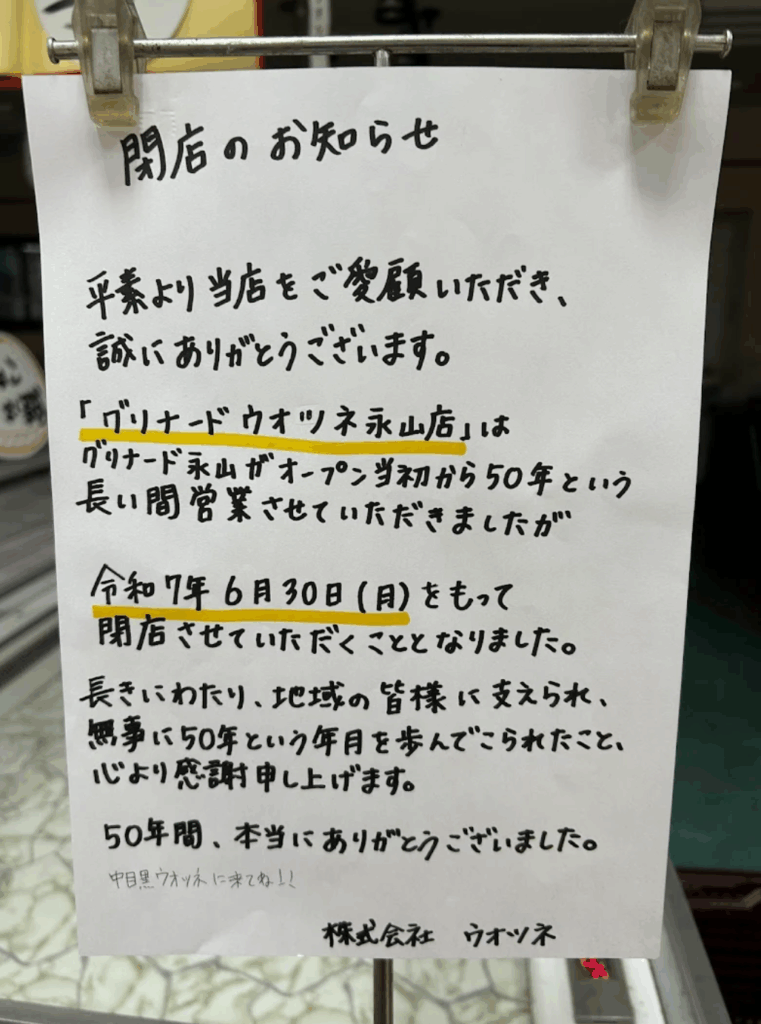 閉店のお知らせ
平素より当店をご愛顧いただき、
誠にありがとうございます。
「グリナードウオツネ永山店」は
グリナード永山がオープン当初から50年という
長い間営業させていただきましたが
令和7年6月30日(月)をもって
閉店させていただくこととなりました。
長きにわたり、地域の皆様に支えられ、
無事に50年という年月を歩んでこられたこと、
心より感謝申し上げます。
50年間、本当にありがとうございました。
中目黒ウオツネに来てね!!
株式会社 ウオツネ